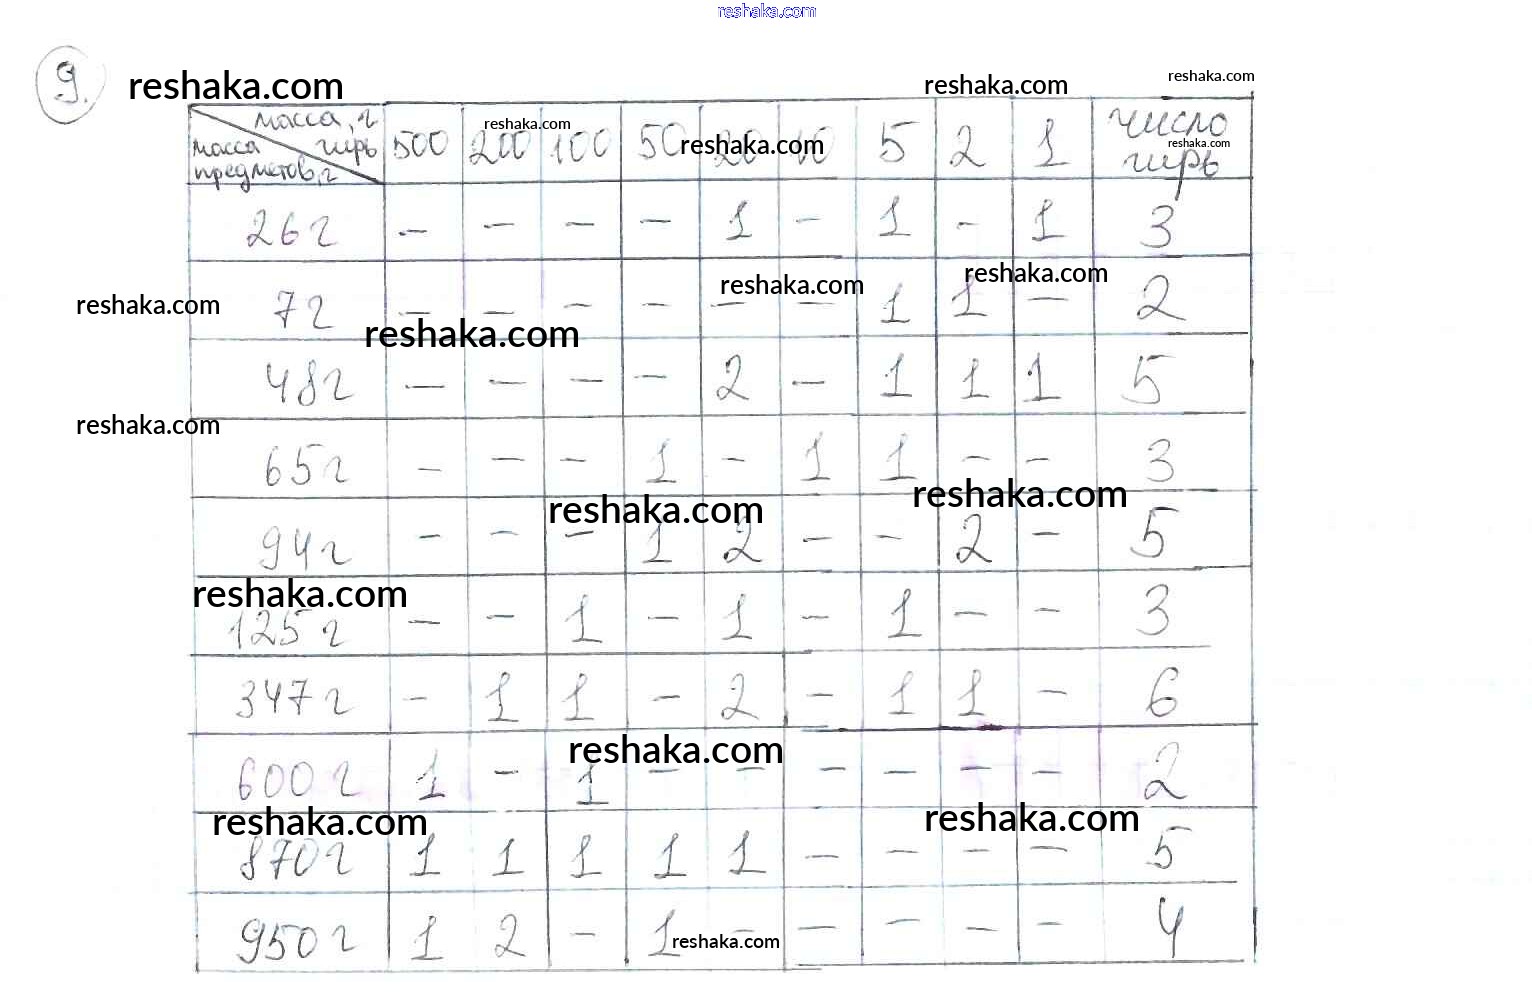 reshaka.com
9. reshaka.com reshaka.com reshaka.com
масса, г
гирь
масса
предметов, г
500 200 100 50 20 10 5 2 1 число гирь
reshaka.com reshaka.com reshaka.com
26 г - - - - 1 - 1 - 1 3
reshaka.com reshaka.com
reshaka.com 7 г - - - - - - 1 1 - 2
reshaka.com
48 г - - - - 2 - 1 1 1 5
reshaka.com
65 г - - - 1 - 1 1 - - 3
reshaka.com reshaka.com
94 г - - - 1 2 - - 2 - 5
reshaka.com
125 г - - 1 - 1 - 1 - - 3
347 г - 1 1 - 2 - 1 1 - 6
reshaka.com
600 г 1 - 1 - - - - - - 2
reshaka.com reshaka.com
870 г 1 1 1 1 1 - - - - 5
950 г 1 2 - 1 - - - - - 4
reshaka.com